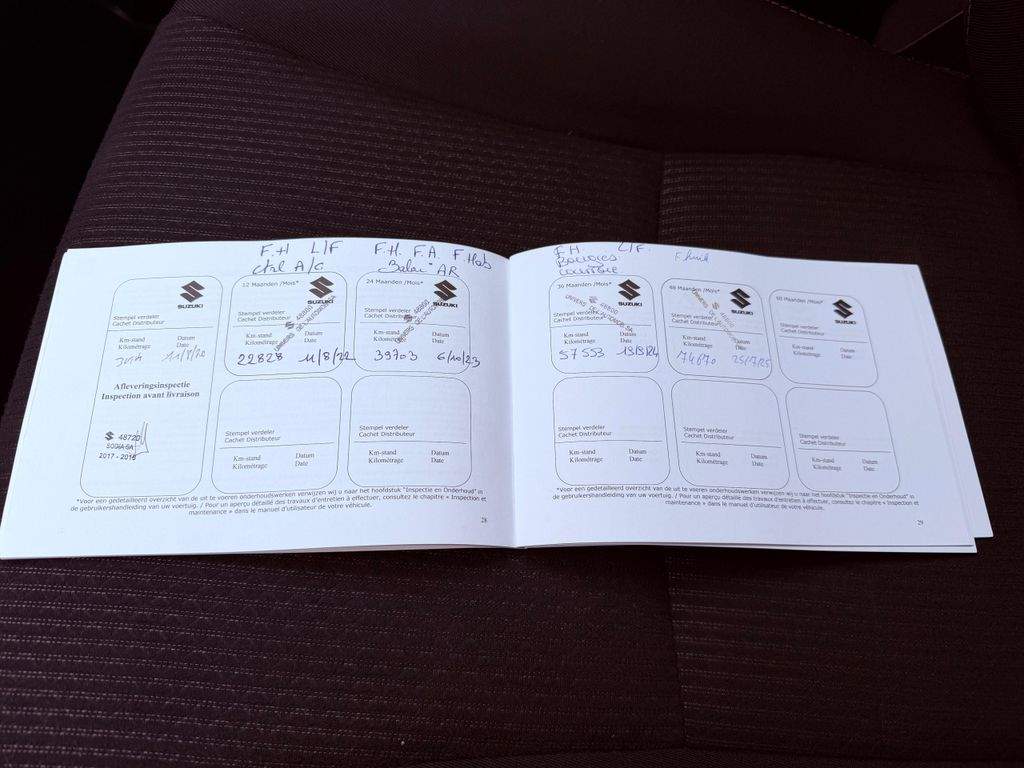 F.H L/F
ctrl A/C
F.H. F.A. F.Hab
Balai AR
F.H. L/F.
Bougies
courroie
F.huil
SUZUKI
Stempel verdeler
Cachet Distributeur
Km-stand Datum
Kilométrage Date
Afleveringsinspectie
Inspection avant livraison
48720
SODIA SA
2017 - 2018
12 Maanden /Mois*
SUZUKI
Stempel verdeler
Cachet Distributeur
48860
UNIVERS DE L'AUTOMOBILE SA
Km-stand Datum
Kilométrage Date
22828 11/8/22
24 Maanden /Mois*
SUZUKI
Stempel verdeler
Cachet Distributeur
48860
UNIVERS DE L'AUTOMOBILE SA
Km-stand Datum
Kilométrage Date
39703 6/10/23
Stempel verdeler
Cachet Distributeur
Km-stand Datum
Kilométrage Date
Stempel verdeler
Cachet Distributeur
Km-stand Datum
Kilométrage Date
*Voor een gedetailleerd overzicht van de uit te voeren onderhoudswerken verwijzen wij u naar het hoofdstuk "Inspectie en Onderhoud" in
de gebruikershandleiding van uw voertuig. / Pour un aperçu détaillé des travaux d'entretien à effectuer, consultez le chapitre « Inspection et
maintenance » dans le manuel d'utilisateur de votre véhicule.
28
36 Maanden /Mois*
SUZUKI
Stempel verdeler
Cachet Distributeur
48860
UNIVERS DE L'AUTOMOBILE SA
Km-stand Datum
Kilométrage Date
57553
48 Maanden /Mois*
SUZUKI
Stempel verdeler
Cachet Distributeur
Km-stand Datum
Kilométrage Date
74670 25/7/25
60 Maanden /Mois*
SUZUKI
Stempel verdeler
Cachet Distributeur
Km-stand Datum
Kilométrage Date
Stempel verdeler
Cachet Distributeur
Km-stand Datum
Kilométrage Date
Stempel verdeler
Cachet Distributeur
Km-stand Datum
Kilométrage Date
Stempel verdeler
Cachet Distributeur
Km-stand Datum
Kilométrage Date
*Voor een gedetailleerd overzicht van de uit te voeren onderhoudswerken verwijzen wij u naar het hoofdstuk "Inspectie en Onderhoud" in
de gebruikershandleiding van uw voertuig. / Pour un aperçu détaillé des travaux d'entretien à effectuer, consultez le chapitre « Inspection et
maintenance » dans le manuel d'utilisateur de votre véhicule.
29